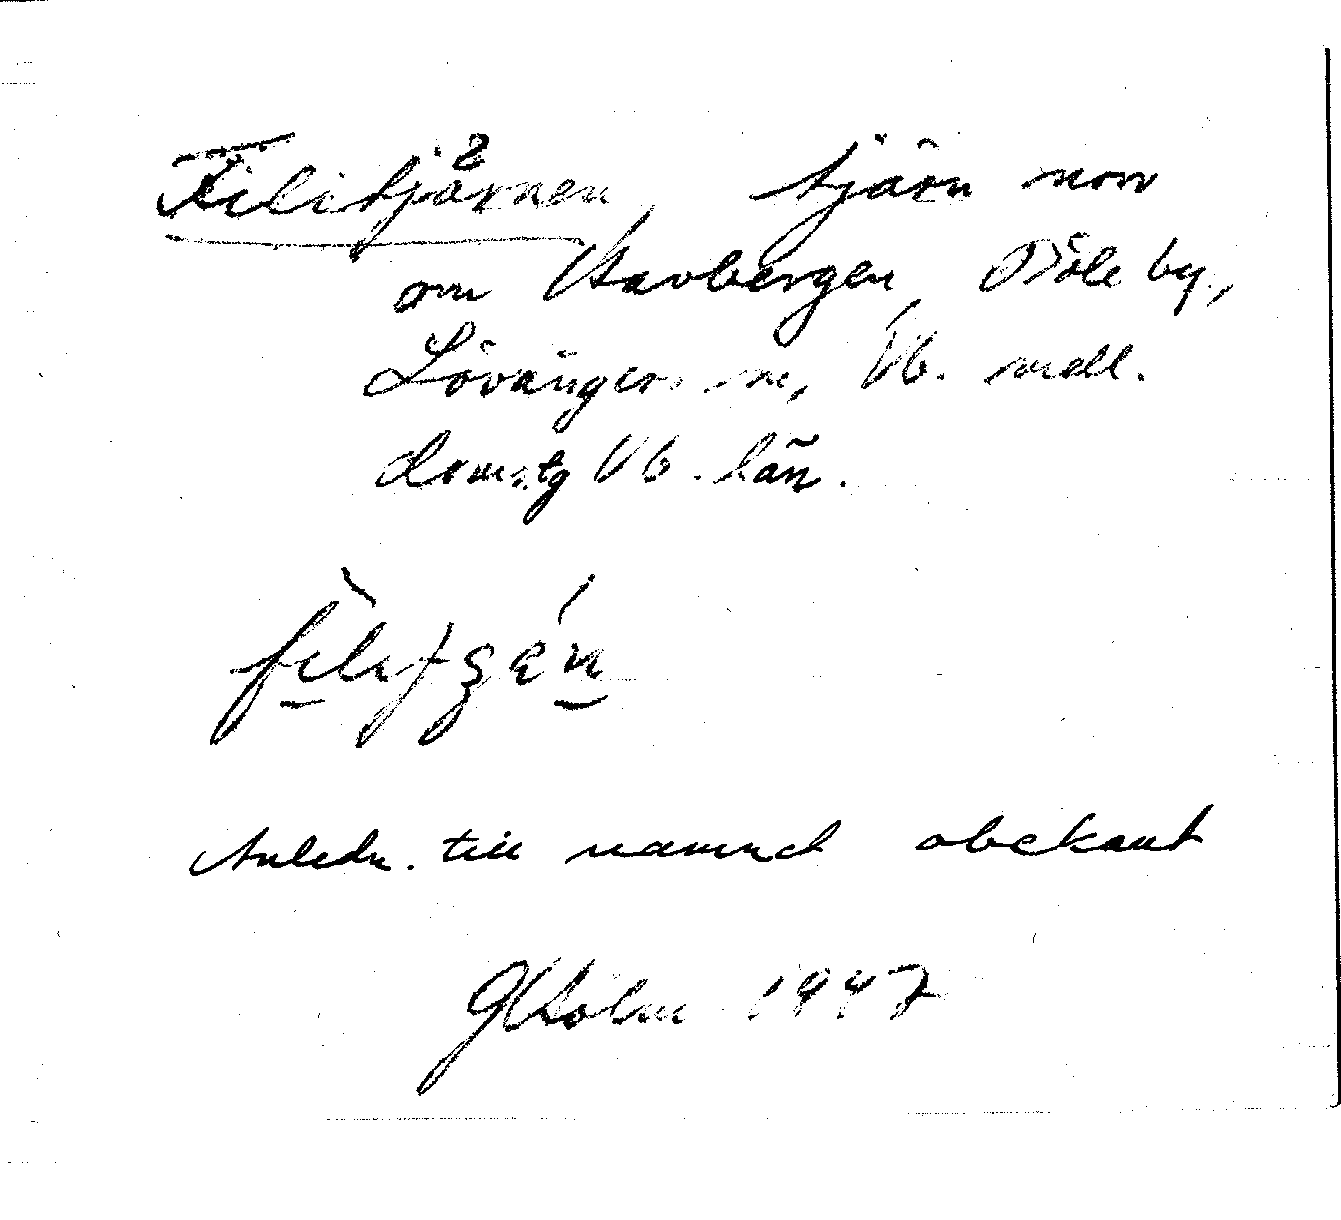 Filitjärnen, tjärn norr
om Havbergen, Böle by,
Lövångers sn, Vb. mell.
domstg Vb. län.
Anledn. till namnet obekant
GHolm 1947